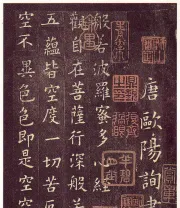 唐歐陽詢書
般若波羅蜜多心經
觀自在菩薩行深般若
五蘊皆空度一切苦
空不異色色即是空空